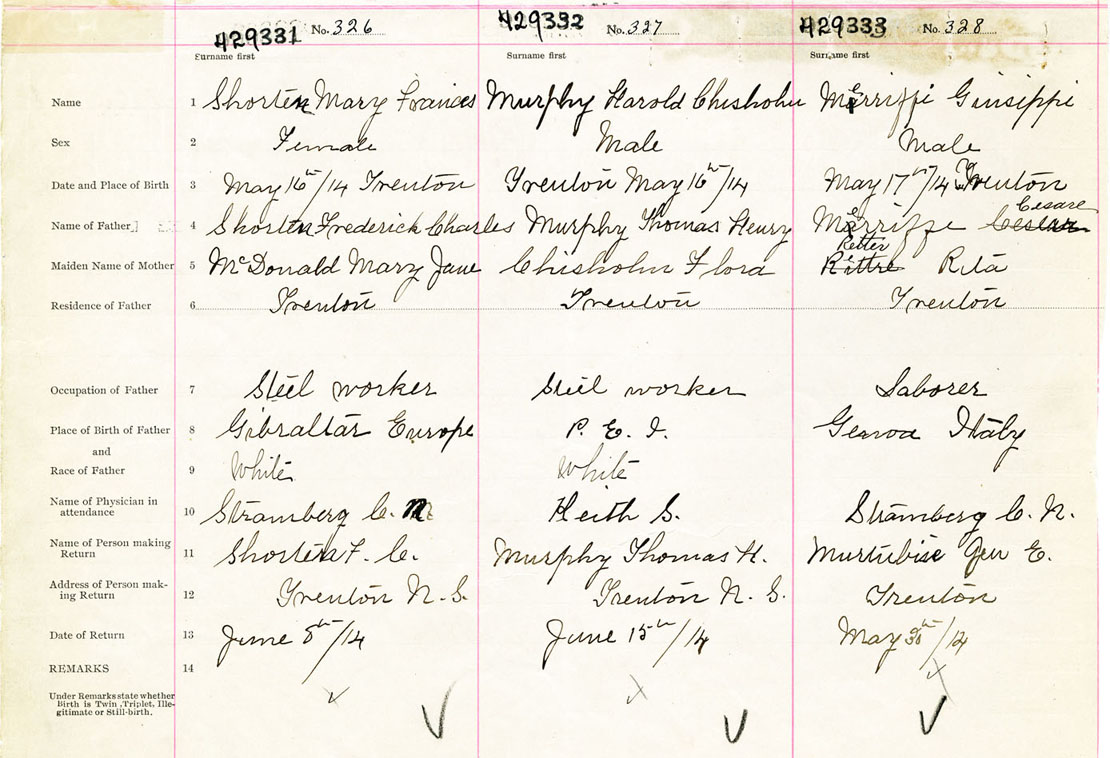 429331 No. 326 429332 No. 327 429333 No. 328
Surname first Surname first Surname first
Name 1 Shorten Mary Frances Murphy Harold Chisholm Merriffi Giuseppi
Sex 2 Female Male Male
Date and Place of Birth 3 May 16th/14 Trenton Trenton May 16th/14 May 17th/14 Trenton
Cesare
Name of Father 4 Shorten Frederick Charles Murphy Thomas Henry Merriffe
Retter
Maiden Name of Mother 5 McDonald Mary Jane Chisholm Flora Rettre Rita
Residence of Father 6 Trenton Trenton Trenton
Occupation of Father 7 Steel worker Steel worker Laborer
Place of Birth of Father 8 Gibraltar Europe P. E. I. Genoa Italy
and
Race of Father 9 White White
Name of Physician in
attendance 10 Stramberg C. Keith S. Stramberg C. N.
Name of Person making
Return 11 Shorten F. C. Murphy Thomas H. Murtubise Geo E.
Address of Person mak-
ing Return 12 Trenton N. S. Trenton N. S. Trenton
Date of Return 13 June 8th/14 June 15th/14 May 30th/14
REMARKS 14
Under Remarks state whether
Birth is Twin, Triplet, Ille-
gitimate or Still-birth.